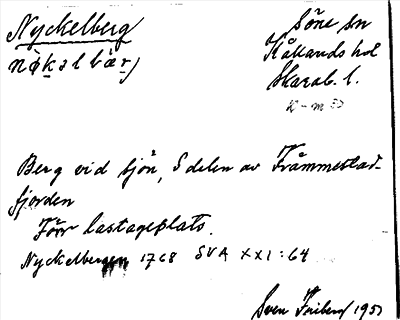 Nyckelberg
Söne sn
nøkəlbær̥j
Kållands hd
Skarab. l.
Berg vid sjön, S delen av Frammestad-
fjorden
Förr lastageplats.
Nyckelbergen 1768 SVA XXI:64
Sven 1950